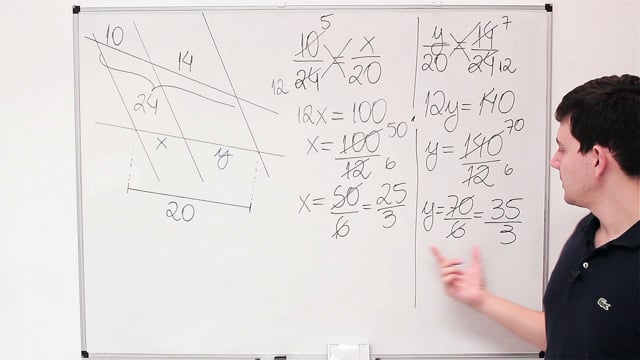 10
14
24
x y
20
10/24 = x/20
5
12
12x = 100
x = 100/12
50
6
x = 50/6 = 25/3
y/20 = 14/24
7
12
12y = 140
y = 140/12
70
6
y = 70/6 = 35/3